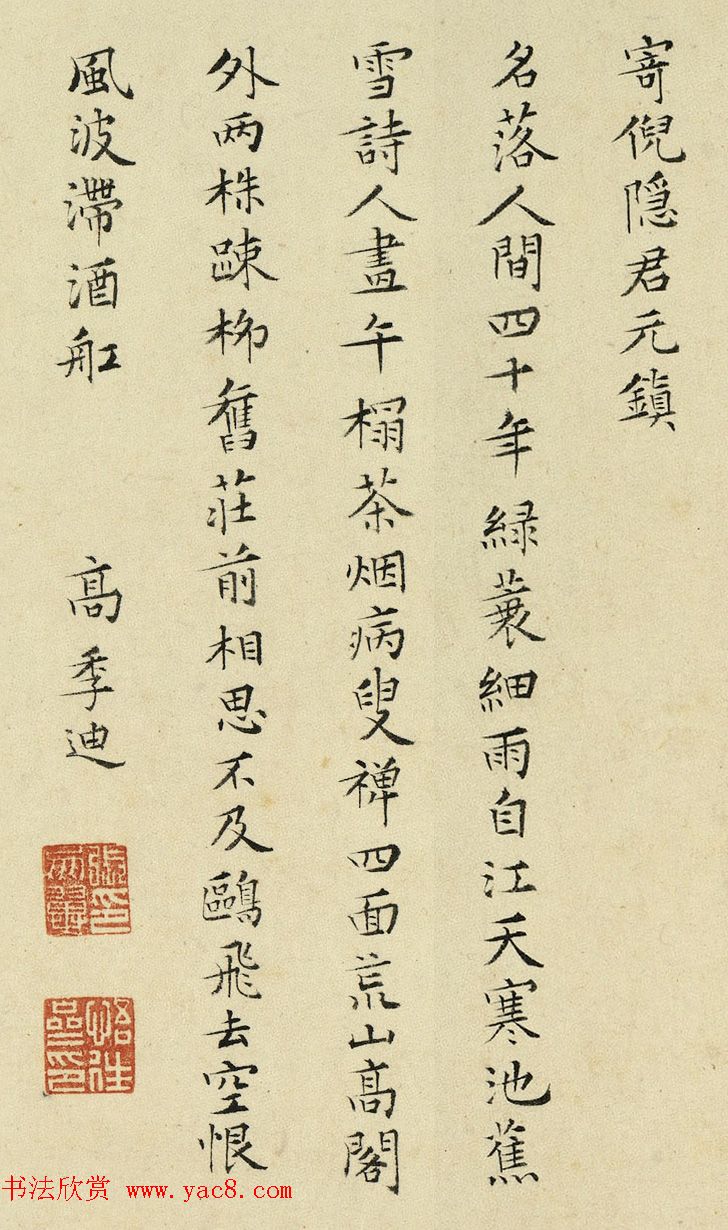 寄倪隐君元鎮
名落人間四十年綠蓑細雨自江天寒池蕉
雪詩人畫午榻茶烟病叟禅四面荒山高閣
外两株踈桺舊莊前相思不及鷗飛去空恨
風波滯酒舡
高季迪
書法欣赏 www.yac8.com